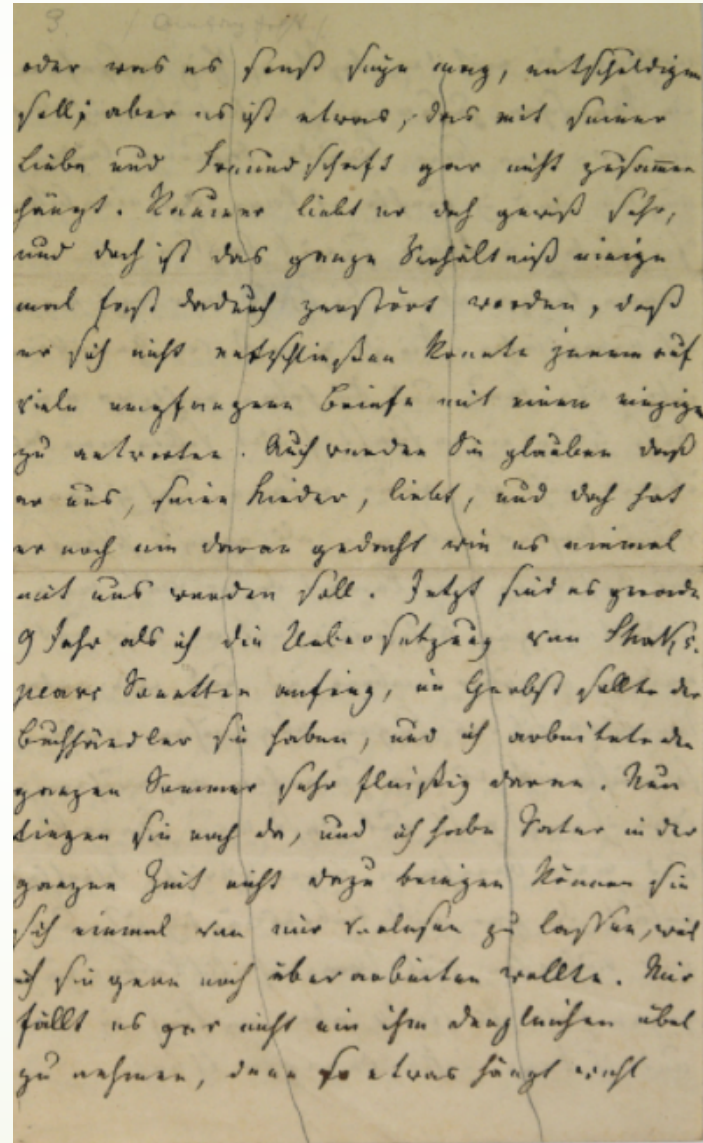 3.
oder was es sonst seyn mag, entschuldigen
soll; aber es ist etwas, das mit seiner
Liebe und Freundschaft gar nicht zusammen
hängt. Raumer liebt er doch gewiß sehr,
und doch ist das ganze Verhältniß einige
mal fast dadurch zerstört worden, daß
er sich nicht entschließen konnte jenem auf
viele empfangene Briefe mit einem einzigen
zu antworten. Auch werden Sie glauben daß
er uns, seine Kinder, liebt, und doch hat
er noch nie daran gedacht wie es einmal
mit uns werden soll. Jetzt sind es gerade
9 Jahr als ich die Uebersetzung von Shaks,
peare Sonetten anfing, im Herbst sollte der
Buchhändler sie haben, und ich arbeitete den
ganzen Sommer sehr fleißig daran. Nun
liegen sie noch da, und ich habe Vater in der
ganzen Zeit nicht dazu bringen können sie
sich einmal von mir vorlesen zu lassen, weil
ich sie gern noch überarbeiten wollte. Mir
fällt es gar nicht ein ihm dergleichen übel
zu nehmen, denn so etwas hängt nicht